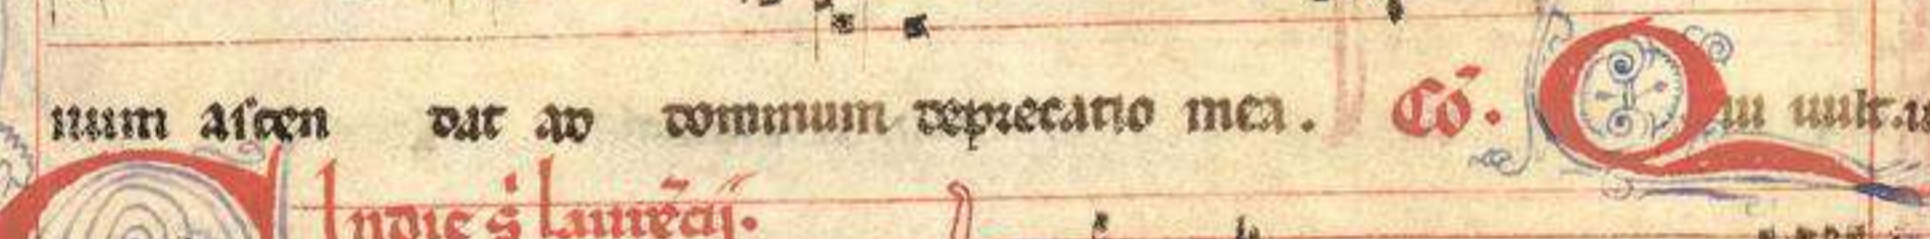 num ascen dat ad dominum deprecatio mea. Cō. Qui uult. u
In die s̄ laurēcij.